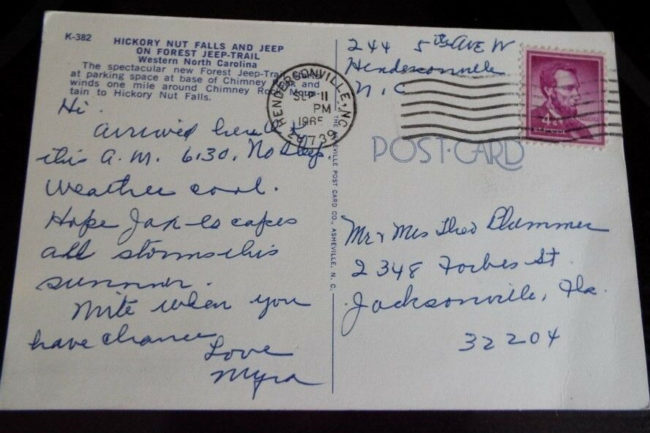 K-382
HICKORY NUT FALLS AND JEEP
ON FOREST JEEP-TRAIL
Western North Carolina
The spectacular new Forest Jeep-Trail
at parking space at base of Chimney Rock and
winds one mile around Chimney Rock Moun-
tain to Hickory Nut Falls.
Hi.
arrived here
this A.M. 6:30. No sleep.
Weather cool.
Hope Jax escapes
all storms this
summer.
Write when you
have chance
Love
Myra
HENDERSONVILLE, N.C.
SEP 11
PM
28739
ASHEVILLE POST CARD CO., ASHEVILLE, N. C.
244 5th AVE W
Hendersonville
N.C.
4¢
POST CARD
Mr & Mrs Theo Plummer
2348 Forbes St.
Jacksonville, Fla.
32204